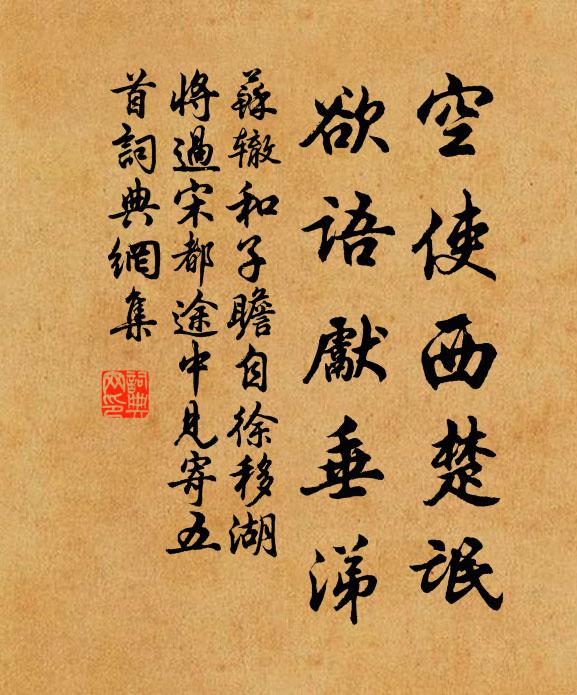 空使西楚氓
欲語獻垂涕
蘇轍和子瞻自徐移湖
將過宋都途中見寄五
首詞典網集
詞典
网印